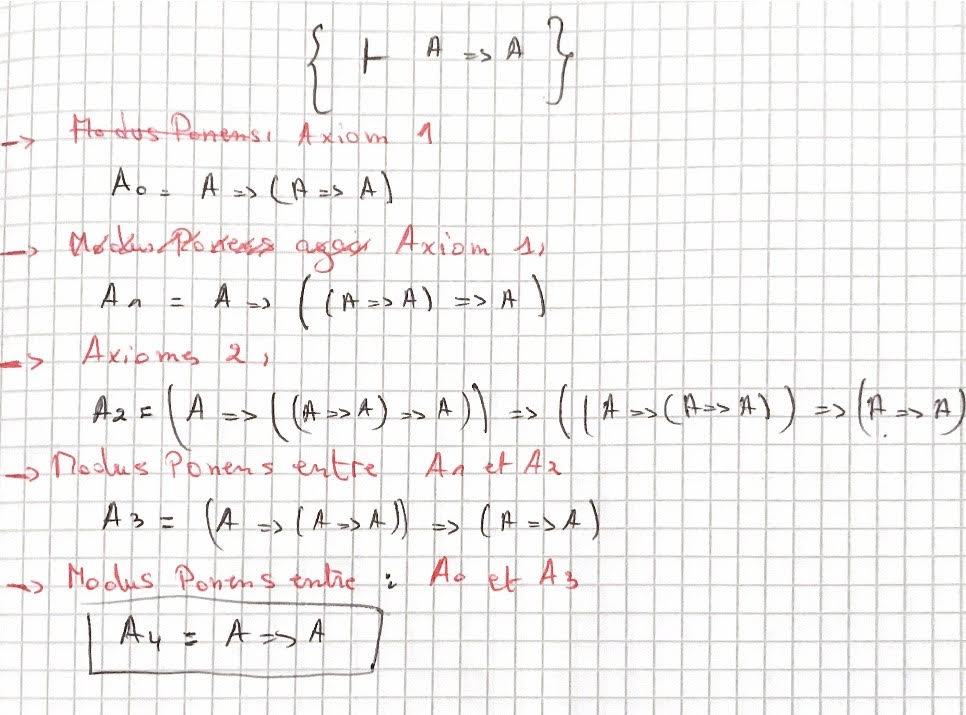 { ⊢ A => A }
-> Modus Ponens, Axiom 1
A0 = A => (A => A)
-> Modus Ponens Axiom 1,
A1 = A => ((A => A) => A)
-> Axiomes 2,
A2 = (A => ((A => A) => A)) => (((A => (A => A)) => (A => A)
-> Modus Ponens entre A1 et A2
A3 = (A => (A => A)) => (A => A)
-> Modus Ponens entre : A0 et A3
A4 = A => A